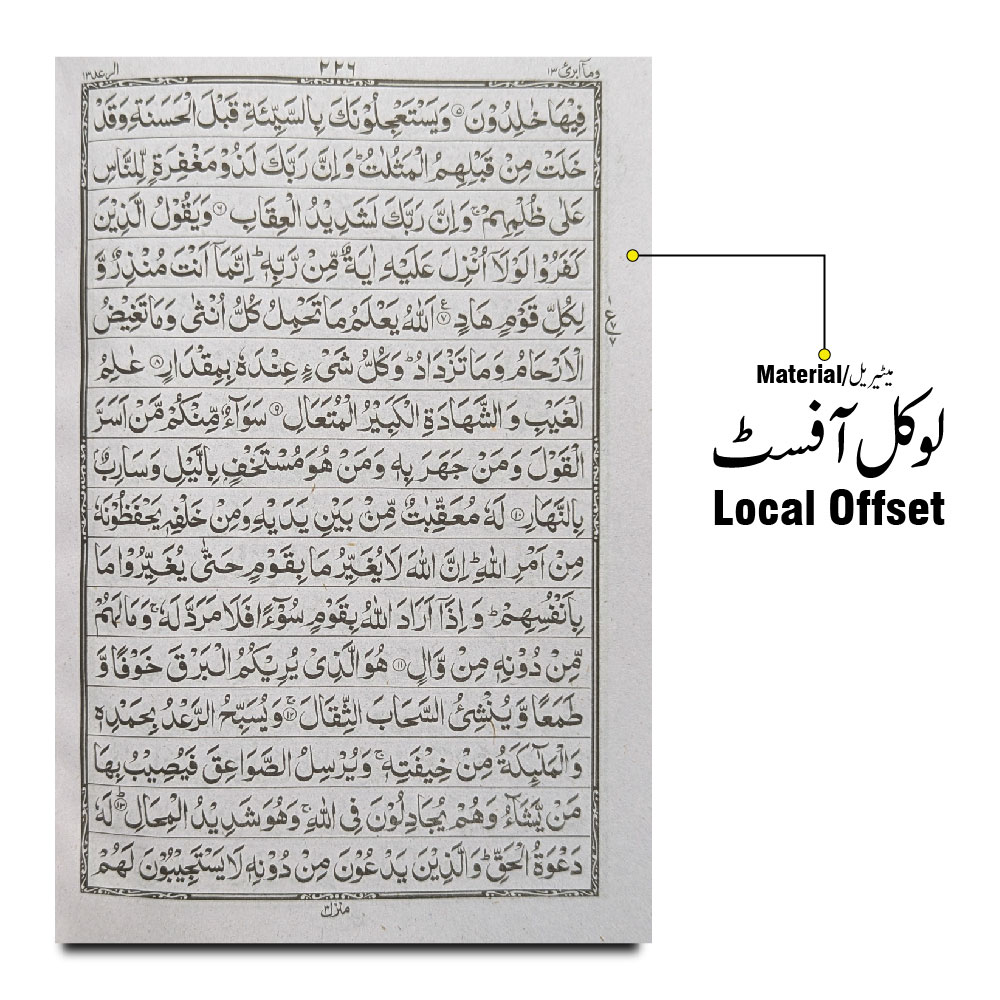 وما ابرئ ۱۳
۲۲۶
الرعد ۱۳
فِيْهَا خٰلِدُوْنَ ۵ وَيَسْتَعْجِلُوْنَكَ بِالسَّيِّئَةِ قَبْلَ الْحَسَنَةِ وَقَدْ
خَلَتْ مِنْ قَبْلِهِمُ الْمَثُلٰتُ ؕ وَاِنَّ رَبَّكَ لَذُوْ مَغْفِرَةٍ لِّلنَّاسِ
عَلٰى ظُلْمِهِمْ ۚ وَاِنَّ رَبَّكَ لَشَدِيْدُ الْعِقَابِ ۶ وَيَقُوْلُ الَّذِيْنَ
كَفَرُوْا لَوْلَاۤ اُنْزِلَ عَلَيْهِ اٰيَةٌ مِّنْ رَّبِّهٖ ؕ اِنَّمَاۤ اَنْتَ مُنْذِرٌ وَّ
لِكُلِّ قَوْمٍ هَادٍ ۷ ع اَللّٰهُ يَعْلَمُ مَا تَحْمِلُ كُلُّ اُنْثٰى وَمَا تَغِيْضُ
الْاَرْحَامُ وَمَا تَزْدَادُ ؕ وَكُلُّ شَىْءٍ عِنْدَهٗ بِمِقْدَارٍ ۸ عٰلِمُ
الْغَيْبِ وَالشَّهَادَةِ الْكَبِيْرُ الْمُتَعَالِ ۹ سَوَآءٌ مِّنْكُمْ مَّنْ اَسَرَّ
الْقَوْلَ وَمَنْ جَهَرَ بِهٖ وَمَنْ هُوَ مُسْتَخْفٍۭ بِالَّيْلِ وَسَارِبٌۢ
بِالنَّهَارِ ۱۰ لَهٗ مُعَقِّبٰتٌ مِّنْۢ بَيْنِ يَدَيْهِ وَمِنْ خَلْفِهٖ يَحْفَظُوْنَهٗ
مِنْ اَمْرِ اللّٰهِ ؕ اِنَّ اللّٰهَ لَا يُغَيِّرُ مَا بِقَوْمٍ حَتّٰى يُغَيِّرُوْا مَا
بِاَنْفُسِهِمْ ؕ وَاِذَاۤ اَرَادَ اللّٰهُ بِقَوْمٍ سُوْٓءًا فَلَا مَرَدَّ لَهٗ ۚ وَمَا لَهُمْ
مِّنْ دُوْنِهٖ مِنْ وَّالٍ ۱۱ هُوَ الَّذِىْ يُرِيْكُمُ الْبَرْقَ خَوْفًا وَّ
طَمَعًا وَّيُنْشِئُ السَّحَابَ الثِّقَالَ ۱۲ ۚ وَيُسَبِّحُ الرَّعْدُ بِحَمْدِهٖ
وَالْمَلٰٓئِكَةُ مِنْ خِيْفَتِهٖ ۚ وَيُرْسِلُ الصَّوَاعِقَ فَيُصِيْبُ بِهَا
مَنْ يَّشَآءُ وَهُمْ يُجَادِلُوْنَ فِى اللّٰهِ ۚ وَهُوَ شَدِيْدُ الْمِحَالِ ۱۳ ؕ لَهٗ
دَعْوَةُ الْحَقِّ ؕ وَالَّذِيْنَ يَدْعُوْنَ مِنْ دُوْنِهٖ لَا يَسْتَجِيْبُوْنَ لَهُمْ
منزل ۳
Material/میٹیریل
لوکل آفسٹ
Local Offset